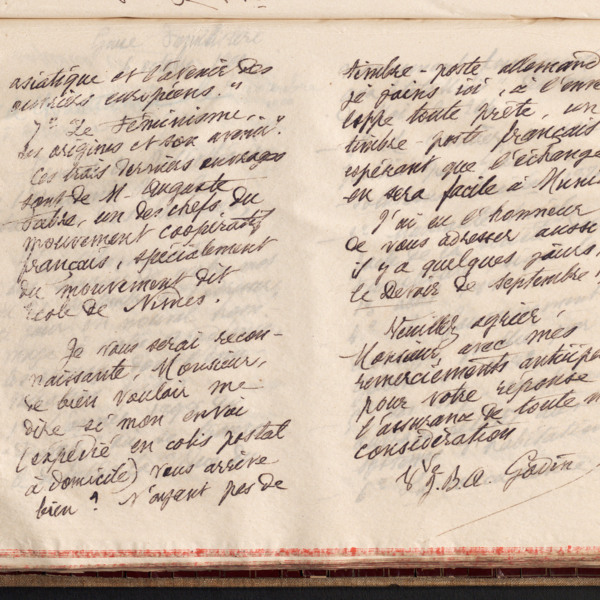 asiatique et l'avenir des
ouvriers européens."
7° "Le Féminisme.
Ses origines et son avenir".
Ces trois derniers ouvrages
sont de M. Auguste
Fabre, un des chefs du
mouvement coopératif
français, spécialement
du mouvement dit
école de Nîmes.
Je vous serai recon-
naissante, Monsieur,
de bien vouloir me
dire si mon envoi
(expédié en colis postal
à domicile) vous arrive
bien ? N'ayant pas de
timbre-poste allemand
je joins ici, à l'enve
loppe toute prête, un
timbre-poste français
espérant que l'échange
en sera facile à Muni
J'ai eu l'honneur
de vous adresser aussi
il y a quelques jours,
le Devoir de septembre
Veuillez agréer,
Monsieur, avec mes
remerciements anticipés
pour votre réponse
l'assurance de toute m
considération
Vve J.B.A. Godin